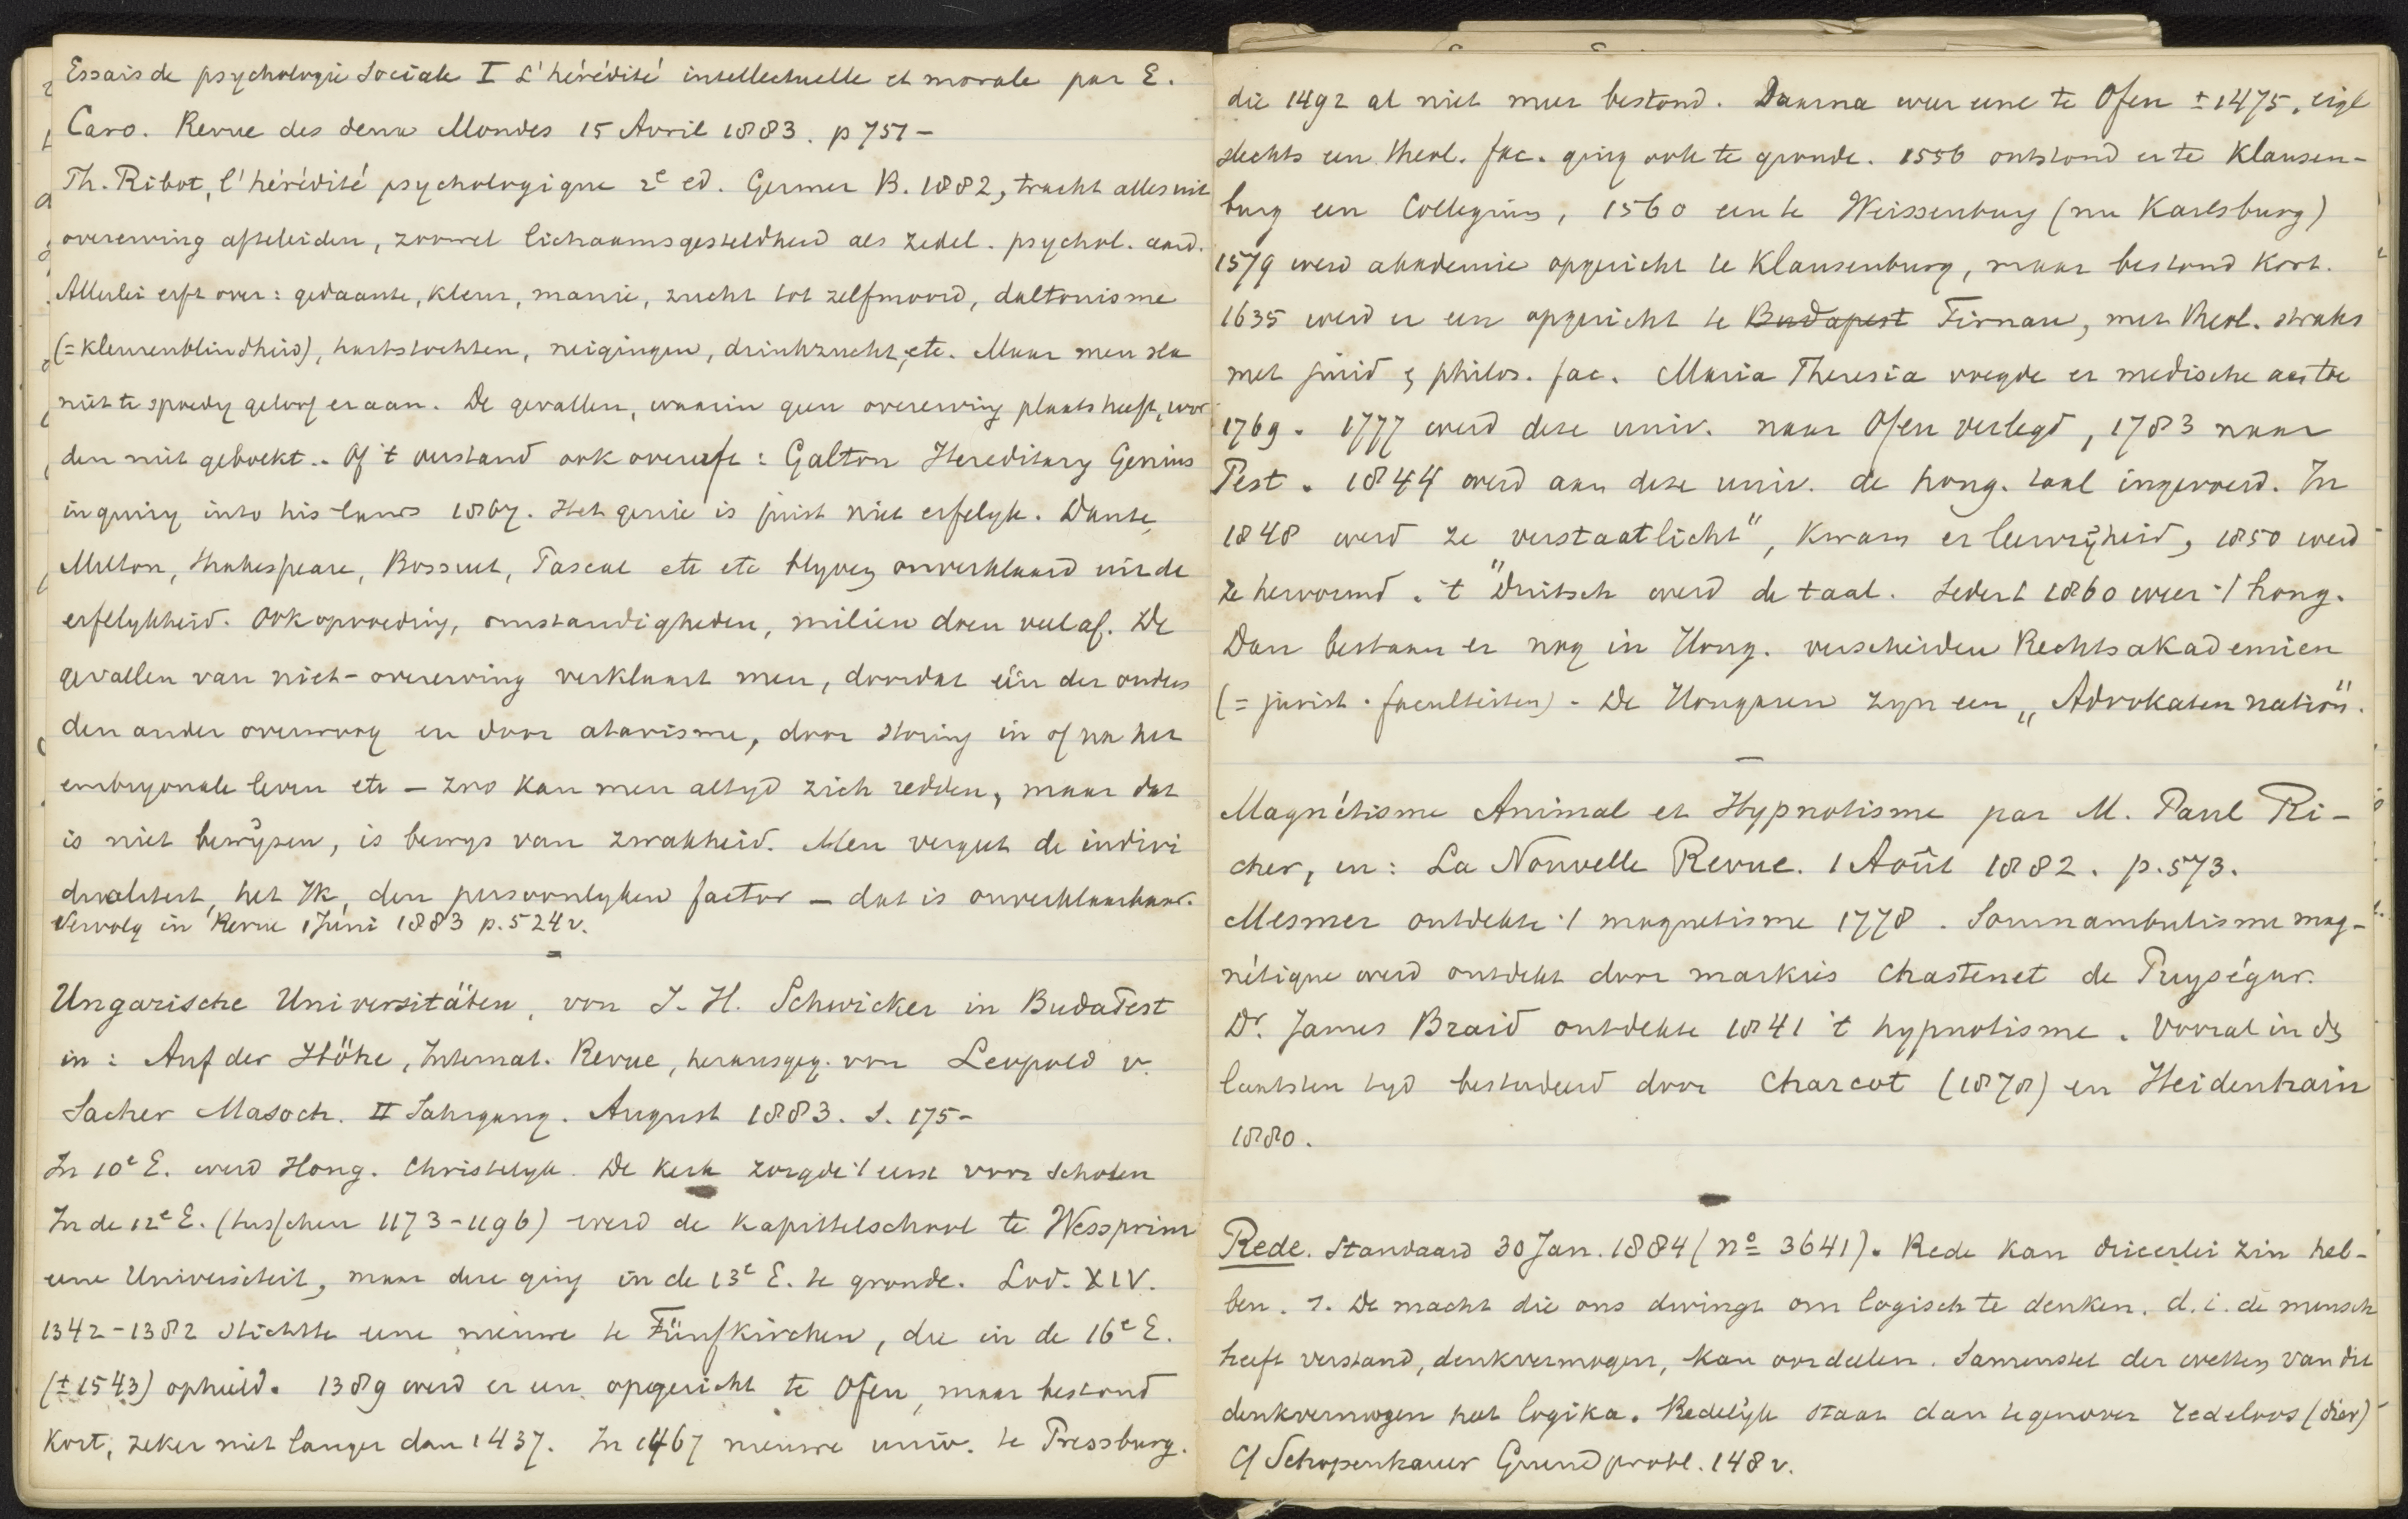 Essais de psychologie Sociale I L'hérédité intellectuelle et morale par E.
Caro. Revue des deux Mondes 15 Avril 1883. p 751 -
Th. Ribot, l'hérédité psychologique 2e ed. Germer B. 1882, tracht alles uit
overerving afteleiden, zoowel lichaamsgesteldheid als zedel. psychol. aard.
Allerlei erft over: gedaante, kleur, manie, zucht tot zelfmoord, daltonisme
(= kleurenblindheid), hartstochten, neigingen, drinkzucht, etc. Maar men sla
niet te spoedig geloof eraan. De gevallen, waarin geen overerving plaats heeft, wor
den niet geboekt. Of 't verstand ook overerft: Galton Hereditary Genius
inquiry into his laws 1867. Het genie is juist niet erfelyk. Dante,
Milton, Shakespeare, Bossuet, Pascal etc etc blyven onverklaard uit de
erfelykheid. Ook opvoeding, omstandigheden, milieu doen veel af. De
gevallen van niet-overerving verklaart men, doordat één der ouders
den ander overwoog en door atavisme, door storing in of na het
embryonale leven etc - zoo kan men altyd zich redden, maar dat
is niet bewijzen, is bewys van zwakheid. Men vergeet de indivi
dualiteit, het Ik, den persoonlyken factor - dat is onverklaarbaar.
Vervolg in Revue 1 Juni 1883 p. 524 v.
Ungarische Universitäten, von J. H. Schwicker in BudaPest
in: Auf der Höhe, Internat. Revue, herausgeg. von Leopold v.
Sacher Masoch. II Jahrgang. August 1883. S. 175-
In 10e E. werd Hong. Christelyk. De Kerk zorgde 't eerst voor scholen
In de 12e E. (tusschen 1173-1196) werd de Kapittelschool te Wessprim
eene Universiteit, maar deze ging in de 13e E. te gronde. Lod. XIV.
1342-1382 stichtte eene nieuwe te Fünfkirchen, die in de 16e E.
(± 1543) ophield. 1389 werd er een opgericht te Ofen, maar bestond
kort, zeker niet langer dan 1437. In 1467 nieuwe univ. te Pressburg.
die 1492 al niet meer bestond. Daarna weer eene te Ofen ± 1475, eigl
slechts een theol. fac. ging ook te gronde. 1556 ontstond er te Klausen-
burg een Collegium, 1560 een te Weissenburg (nu Karlsburg)
1579 werd akademie opgericht te Klausenburg, maar bestond kort.
1635 werd er een opgericht te Budapest Tirnau, met theol. straks
met jurid & philos. fac. Maria Theresia voegde er medische aan toe
1769. 1777 werd deze univ. naar Ofen verlegd, 1783 naar
Pest. 1844 werd aan deze univ. de hong. taal ingevoerd. In
1848 werd ze „verstaatlicht", kwam er leervrijheid, 1850 werd
ze hervormd. 't Duitsch werd de taal. Sedert 1860 weer 't hong.
Dan bestaan er nog in Hong. verscheiden Rechtsakademien
(= jurist. faculteiten). De Hongaren zyn een „Advokaten nation".
Magnétisme Animal et Hypnotisme par M. Paul Ri-
cher, en: La Nouvelle Revue. 1 Août 1882. p. 573.
Mesmer ontdekte 't magnetisme 1778. Somnambulisme mag-
nétique werd ontdekt door markies Chastenet de Puységur.
Dr. James Braid ontdekte 1841 't hypnotisme. Vooral in de
laatsten tyd bestudeerd door Charcot (1878) en Heidenhain
1880.
Rede. Standaard 30 Jan. 1884 (no 3641). Rede kan drieerlei zin heb-
ben. 1. De macht die ons dwingt om logisch te denken. d. i. de mensch
heeft verstand, denkvermogen, kan oordeelen. Samenstel der wetten van dit
denkvermogen heet logika. Redelijk staat dan tegenover redeloos (dier)
Cf Schopenhauer Grundprobl. 148 v.